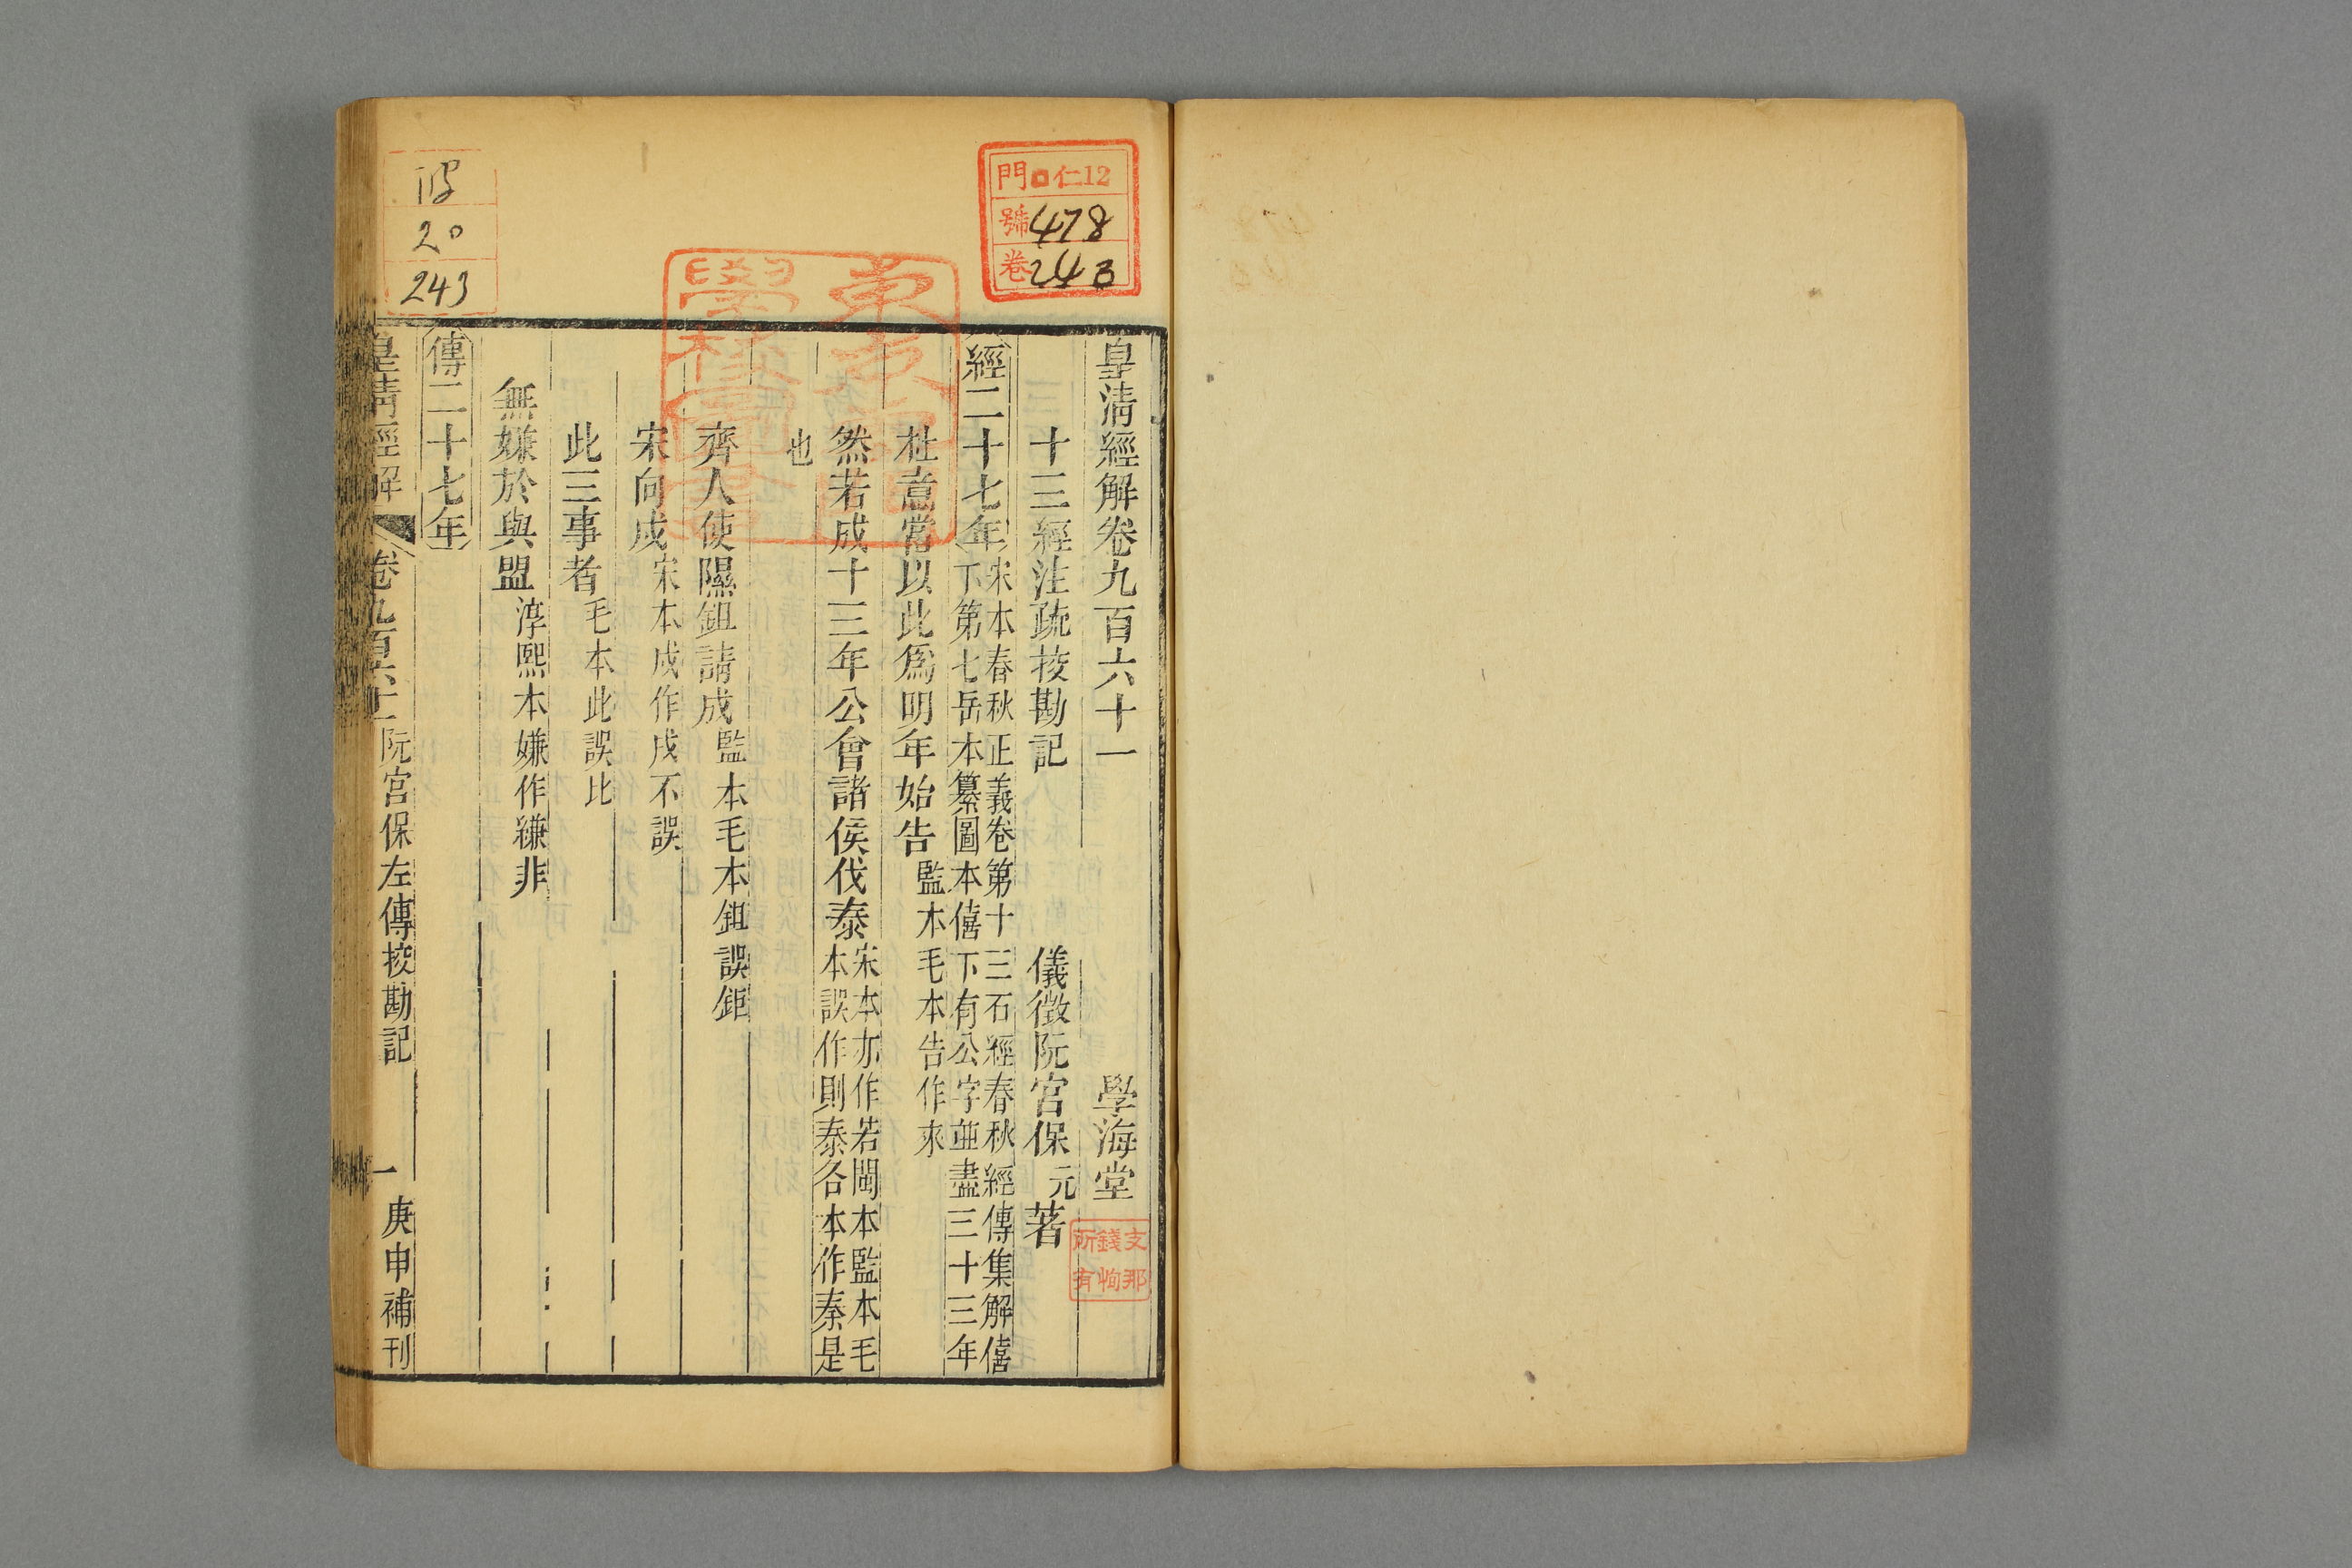 皇清經解卷九百六十一 學海堂
十三經注疏挍勘記 儀徵阮宮保元著
經二十七年 宋本春秋正義卷第十三石經春秋經傳集解僖
下第七岳本纂圖本僖下有公字並盡三十三年
杜意當以此爲明年始告 監本毛本告作來
然若成十三年公會諸侯伐秦 宋本亦作若閩本監本毛
本誤作則秦各本作秦是
也
齊人使隰鉏請成 監本毛本鉏誤鉅
宋向戌 宋本戌作戍不誤
此三事者 毛本此誤比
無嫌於與盟 淳熙本嫌作縑非
傳二十七年
皇清經解 卷九百六十一 阮宮保左傳挍勘記 一 庚申補刊
門 仁12
號 478
卷 243
20
243
支那
錢恂
所有